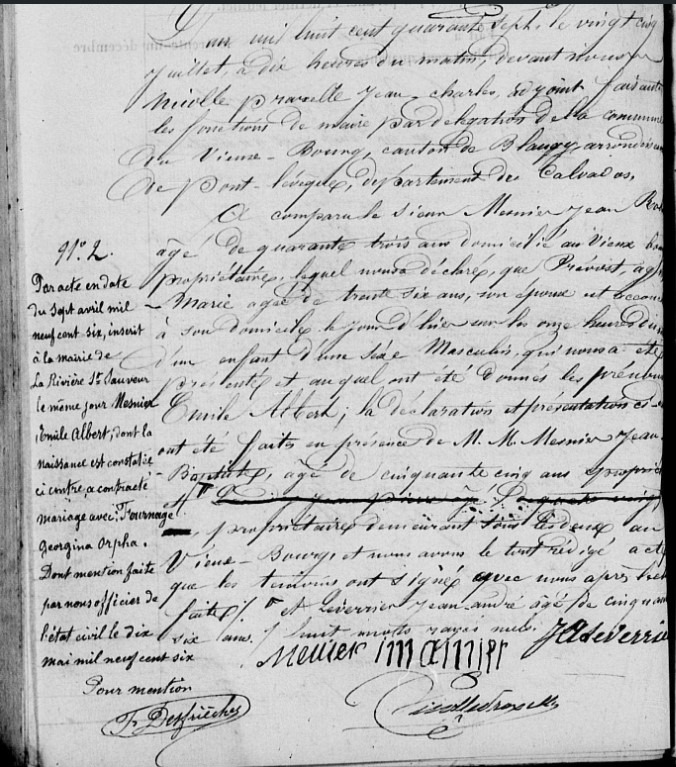 L'an mil huit cent quarante sept, le vingt cinq
juillet, à dix heures du matin, devant nous
Nicolle pravelle Jean-charles, adjoint faisant
les fonctions de maire par délégation de la commune
du Vieux-Bourg, canton de Blangy, arrondis
de pont-lévêque, département du Calvados.
A comparu le sieur Mesnier Jean
âgé de quarante trois ans domicilié au Vieux
propriétaire, lequel nous a déclaré, que Prévost,
Marie agée de trente six ans, son épouse est
à son domicile le jour d'hier sur les onze heures
d'un enfant d'un séxe Masculin, qui nous a été
présenté et auquel ont été donnés les prénoms
Emile Albert; la déclaration et présentation
ont été faites en présence de M. M. Mesnier Jean
Baptiste, âgé de cinquante cinq ans proprié
et
propriétaires demeurant tous les deux au
Vieux-Bourg, et nous avons le tout rédigé acte
que les témoins ont signé avec nous après
faite /. et Leverrier Jean andré âgé de cinquante
six ans. / huit mots rayés nuls. JALeverrie
Menier
N°. 2.
Par acte en date
du sept avril mil
neuf cent six, inscrit
à la mairie de
La Rivière St. Sauveur
le même jour Mesnier
Emile Albert, dont la
naissance est constatée
ci contre, a contracté
mariage avec: Fournage
Georgina Orpha.
Dont mention faite
par nous officier de
l'état civil le dix
mai mil neuf cent six
Pour mention